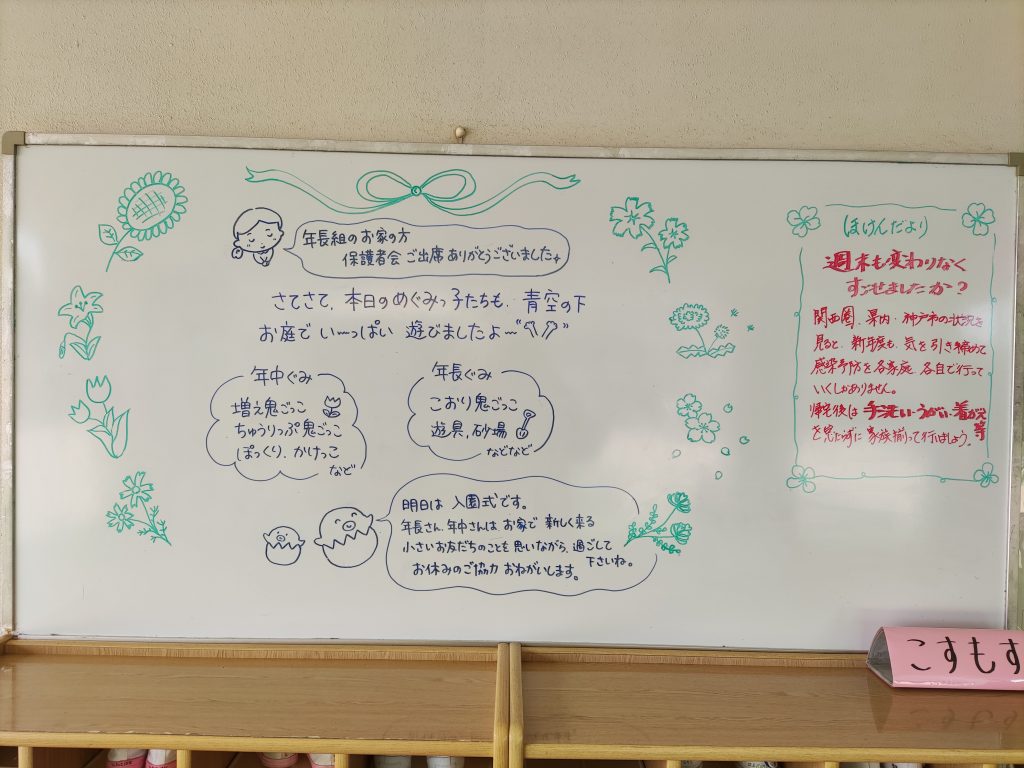 年長組のお家の方
保護者会 ご出席 ありがとうございました
さてさて、本日のめぐみっ子たちも、青空の下
お庭で い〜っぱい 遊びましたよ〜
年中ぐみ
増え鬼ごっこ
ちゅうりっぷ鬼ごっこ
ぽっくり、かけっこ
など
年長ぐみ
こおり鬼ごっこ
遊具、砂場
などなど
明日は 入園式です。
年長さん、年中さんは お家で 新しく来る
小さいお友だちのことを 思いながら、過ごして
下さいね。
お休みのご協力 おねがいします。
ほけんだより
週末も変わりなく
すごせましたか？
関西圏、県内・神戸市の状況を
見ると、新年度も、気を引き締めて
感染予防を各家庭、各自で行って
いくしかありません。
帰宅後は 手洗い・うがい・着がえ
等
を忘れずに 家族揃って行いましょう。
こすもす